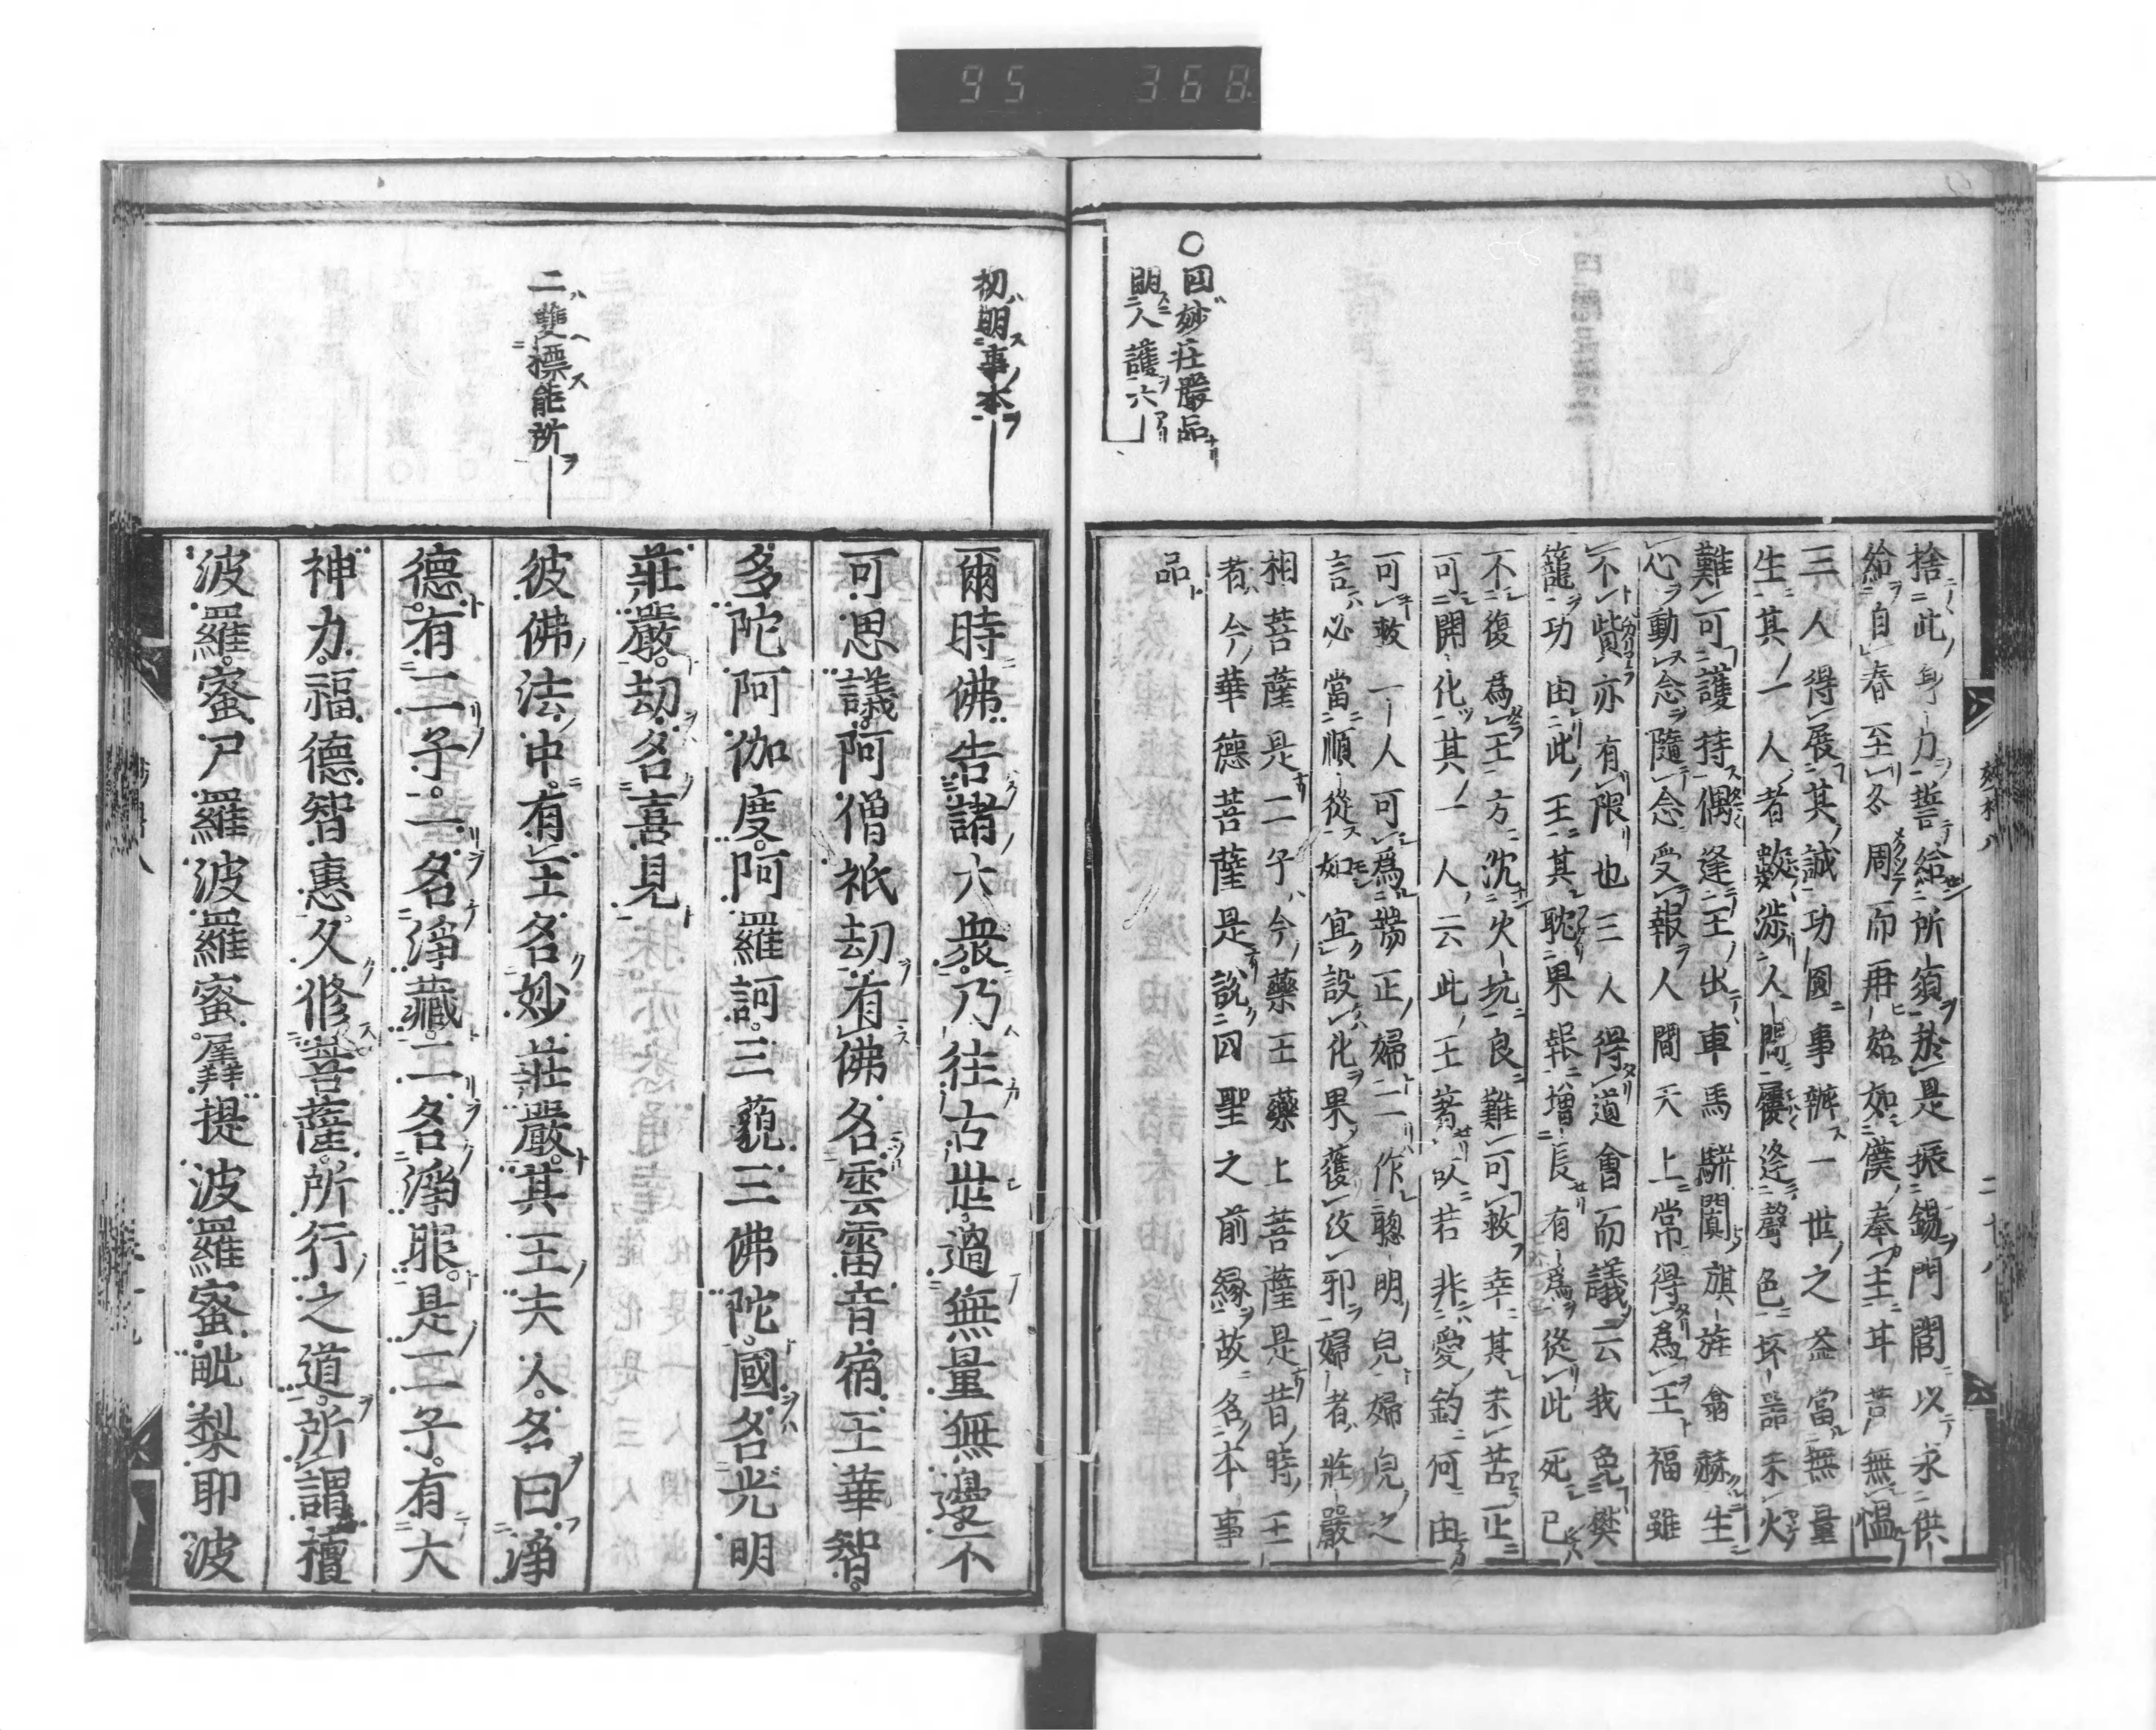 95 368
○四妙莊嚴品
明二人護六
捨此身力誓給所須於是振錫門閭以求供
給自春至冬周而再始如僕奉主耳苦無慍
三人得展其誠功圓事辦一世之益當無量
生其一人者數涉人間屢逢聲色坏器未火
難可護持偶逢王出車馬駢闐旗旌翕赫生
心動念隨念受報人間天上常得為王福雖
不貲亦有限也三人得道會而議云我免樊
籠功由此王其耽果報增長有為從此死已
不復為王方沈火坑良難可救幸其未苦正
可開化其一人云此王著欲若非愛釣何由
可救一人可為端正婦二作聰明兒婦兒之
言必當順從如宜設化果獲改邪婦者莊嚴
相菩薩是二子今藥王藥上菩薩是昔時王
者今華德菩薩是說四聖之前緣故名本事
品
初明事本
二雙標能所
爾時佛告諸大衆乃往古世過無量無邊不
可思議阿僧祇劫有佛名雲雷音宿王華智
多陀阿伽度阿羅訶三藐三佛陀國名光明
莊嚴劫名喜見
彼佛法中有王名妙莊嚴其王夫人名曰淨
德有二子一名淨藏二名淨眼是二子有大
神力福德智惠久修菩薩所行之道所謂檀
波羅蜜尸羅波羅蜜羼提波羅蜜毗梨耶波